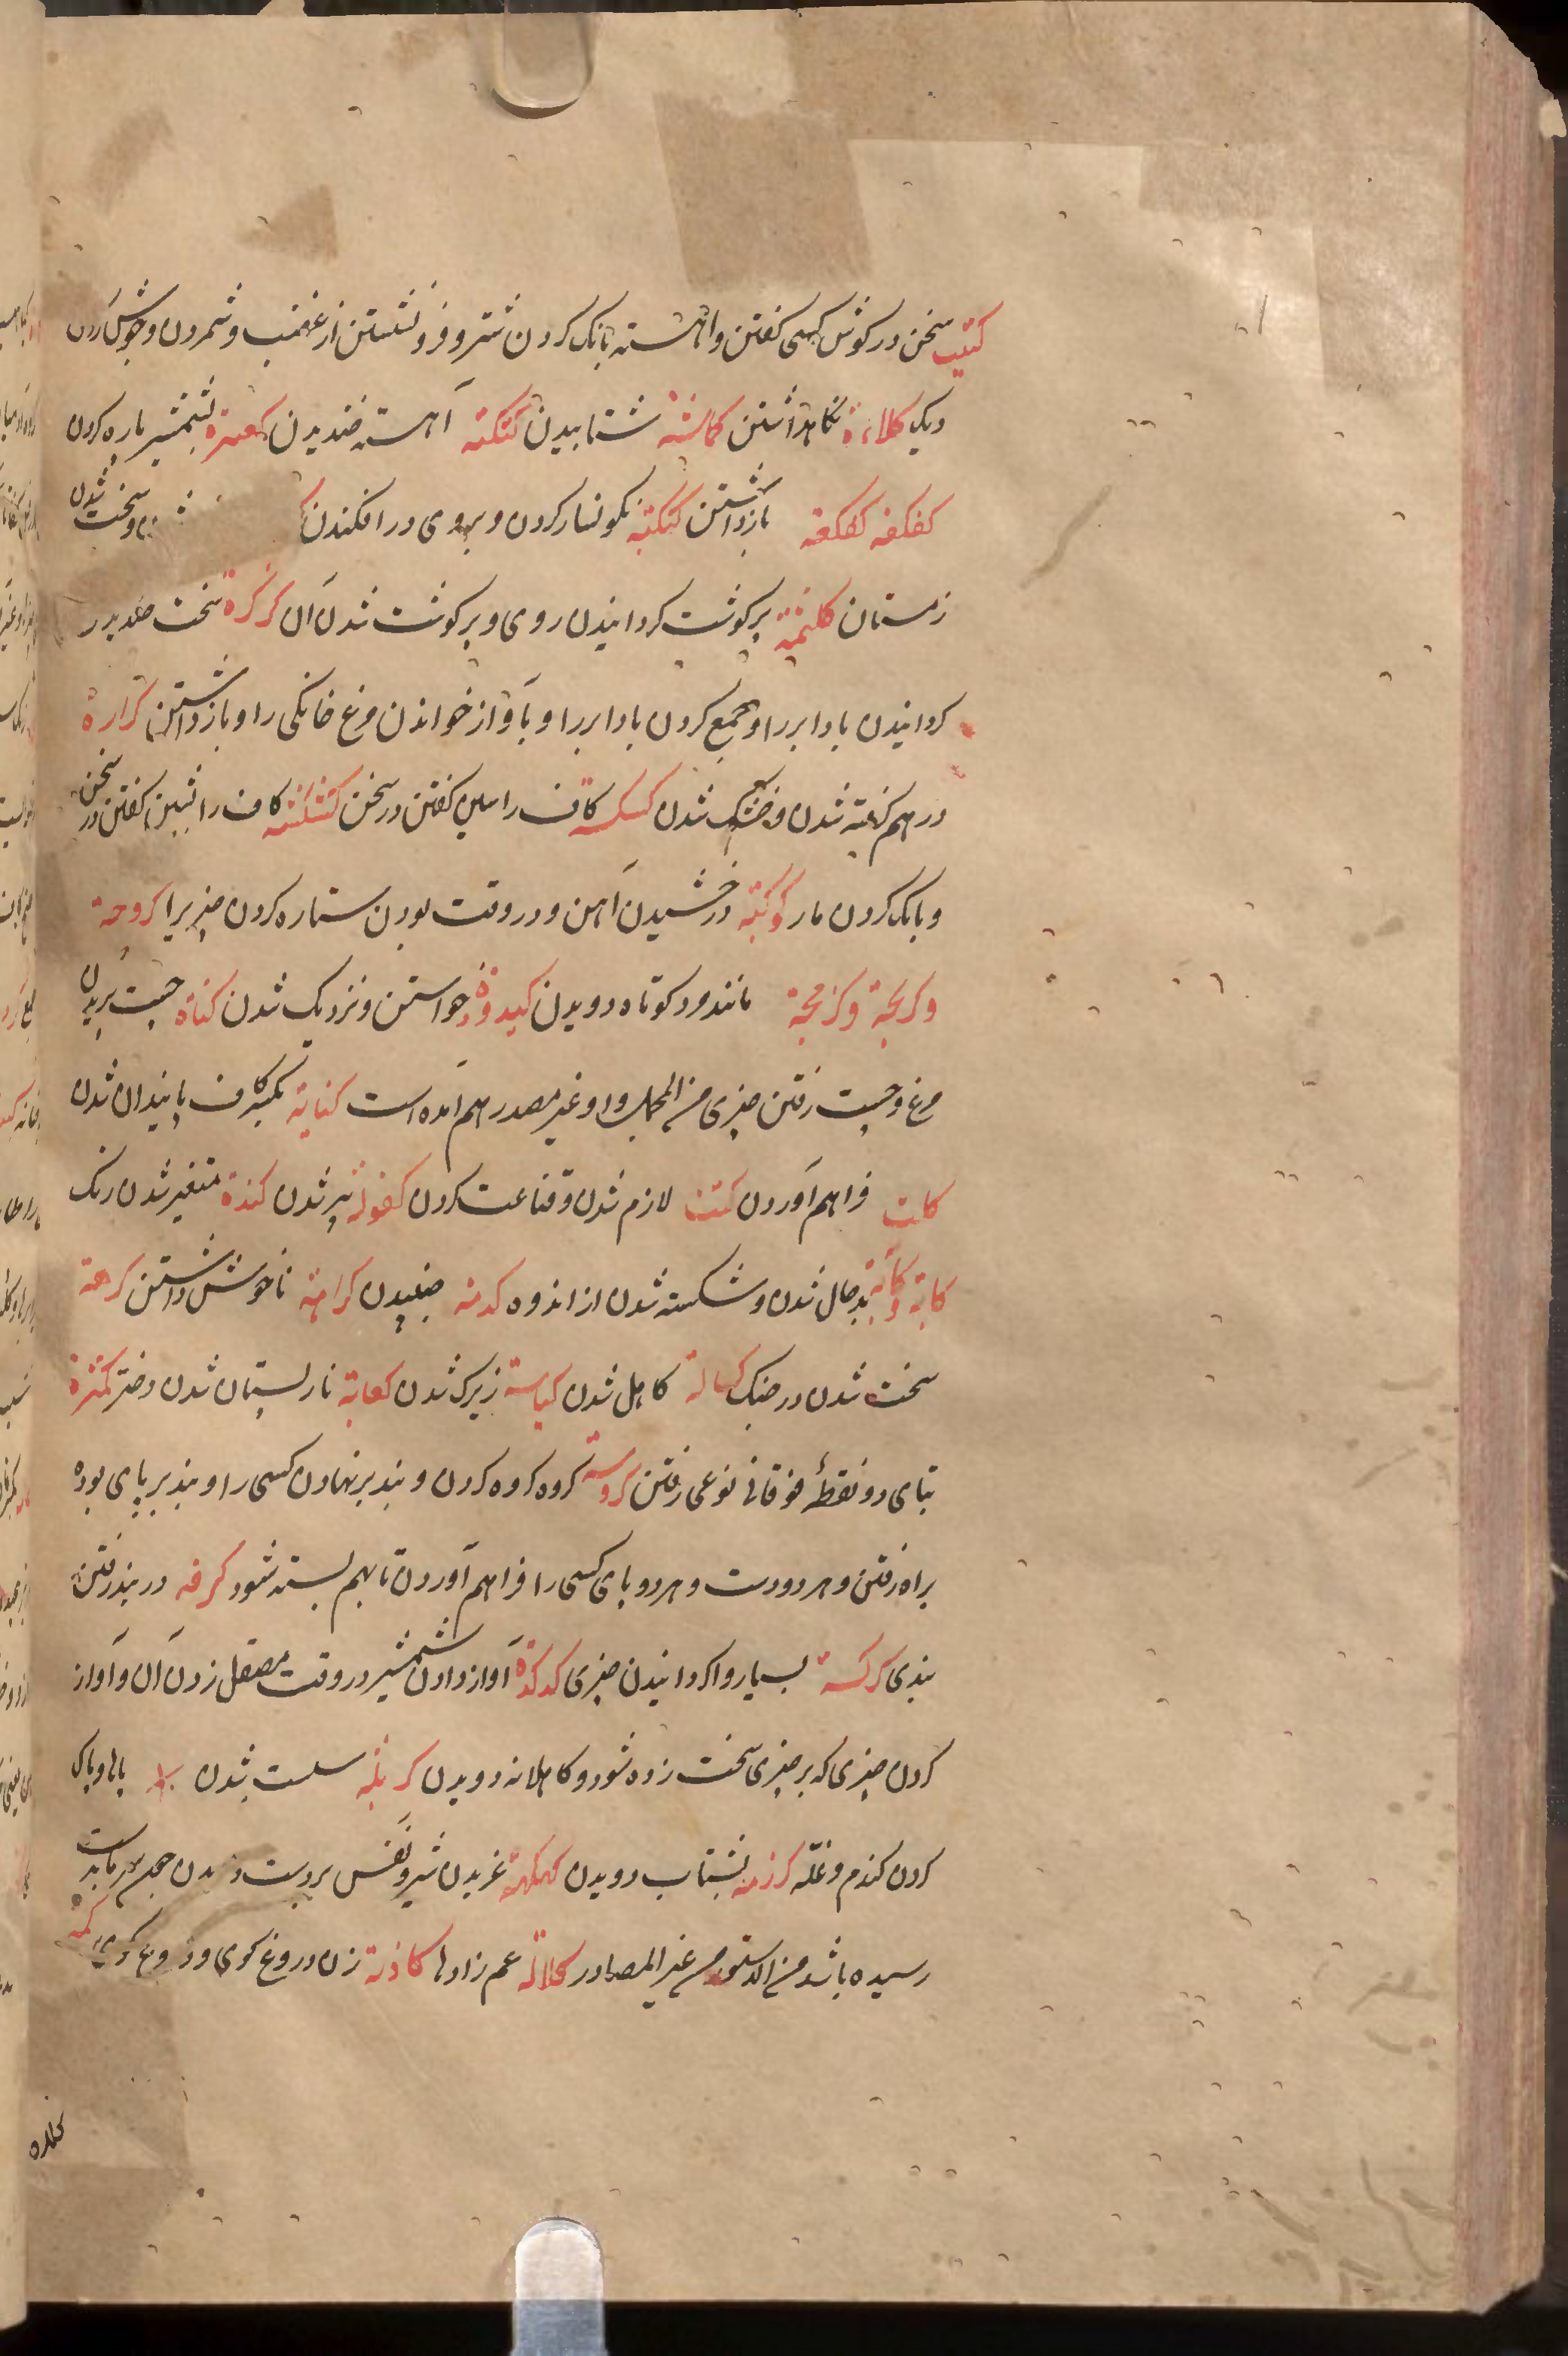 کتیت سخن در کوش کسی کفتن و اهسته بانک کردن شتر و فرو نشستن از غضب و شمردن و جوش کردن
دیک کلاءة نکاهداشتن کماشة شتابیدن کتکتة آهسته خندیدن کعبرة بشمشیر پاره کردن
کفکفه کعکعة بازداشتن کبکبة نکونسار کردن و بروی در افکندن و سخت شدن
زمستان کلثمة پر کوشت کردانیدن روی و پر کوشت شدن آن کرکرة سخت خندیدن
کردانیدن باد ابر را و جمع کردن باد ابر را و بآواز خواندن مرغ خانکی را و بازداشتن کزازة
در هم کرفته شدن و خشک شدن کسکسه کاف را سین کفتن در سخن کشکشه کاف را شین کفتن در سخن
و بانک کردن مار کوکبة درخشیدن آهن و در وقت بودن ستاره کردن چیزیرا کردحة
و کربحة و کزمحة مانند مرد کوتاه دویدن کیدودة خواستن و نزدیک شدن کناة چست پریدن
مرغ و چست رفتن چیزی من المجمل و او غیر مصدر هم آمده است کنایة بکسر کاف پایندان شدن
کات فراهم آوردن کتت لازم شدن و قناعت کردن کفولة پیر شدن کندة متغیر شدن رنک
کابة و کآبة بدحال شدن و شکسته شدن از اندوه کدمة جنبیدن کراهة ناخوش داشتن کرهة
سخت شدن در جنک کهالة کاهل شدن کیاسة زیرک شدن کعابة نار پستان شدن دختر کمترة
بتای دو نقطهٔ فوقانی نوعی رفتن کردسة کروه کروه کردن و بند بر نهادن کسی را و بند بر پای بوده
براه رفتن و هر دو دست و هر دو پای کسی را فراهم آوردن تا بهم بسته شود کرفه در بند رفتن
بندی کرکسة بسیار واکردانیدن چیزی کدکدة آواز دادن شمشیر در وقت صیقل زدن آن و آواز
کردن چیزی که بر چیزی سخت زده شود و کاهلانه دویدن کربلة سست شدن پاها و پاک
کردن کندم و غله کرزمة بشتاب دویدن کهکهة غریدن شیر و نفس بر دست دمیدن چون سرما بدست
رسیده باشد من الدستور من غیر المصادر کلالة عم زادها کاذبة زن دروغ کوی و دروغ کوی کمه